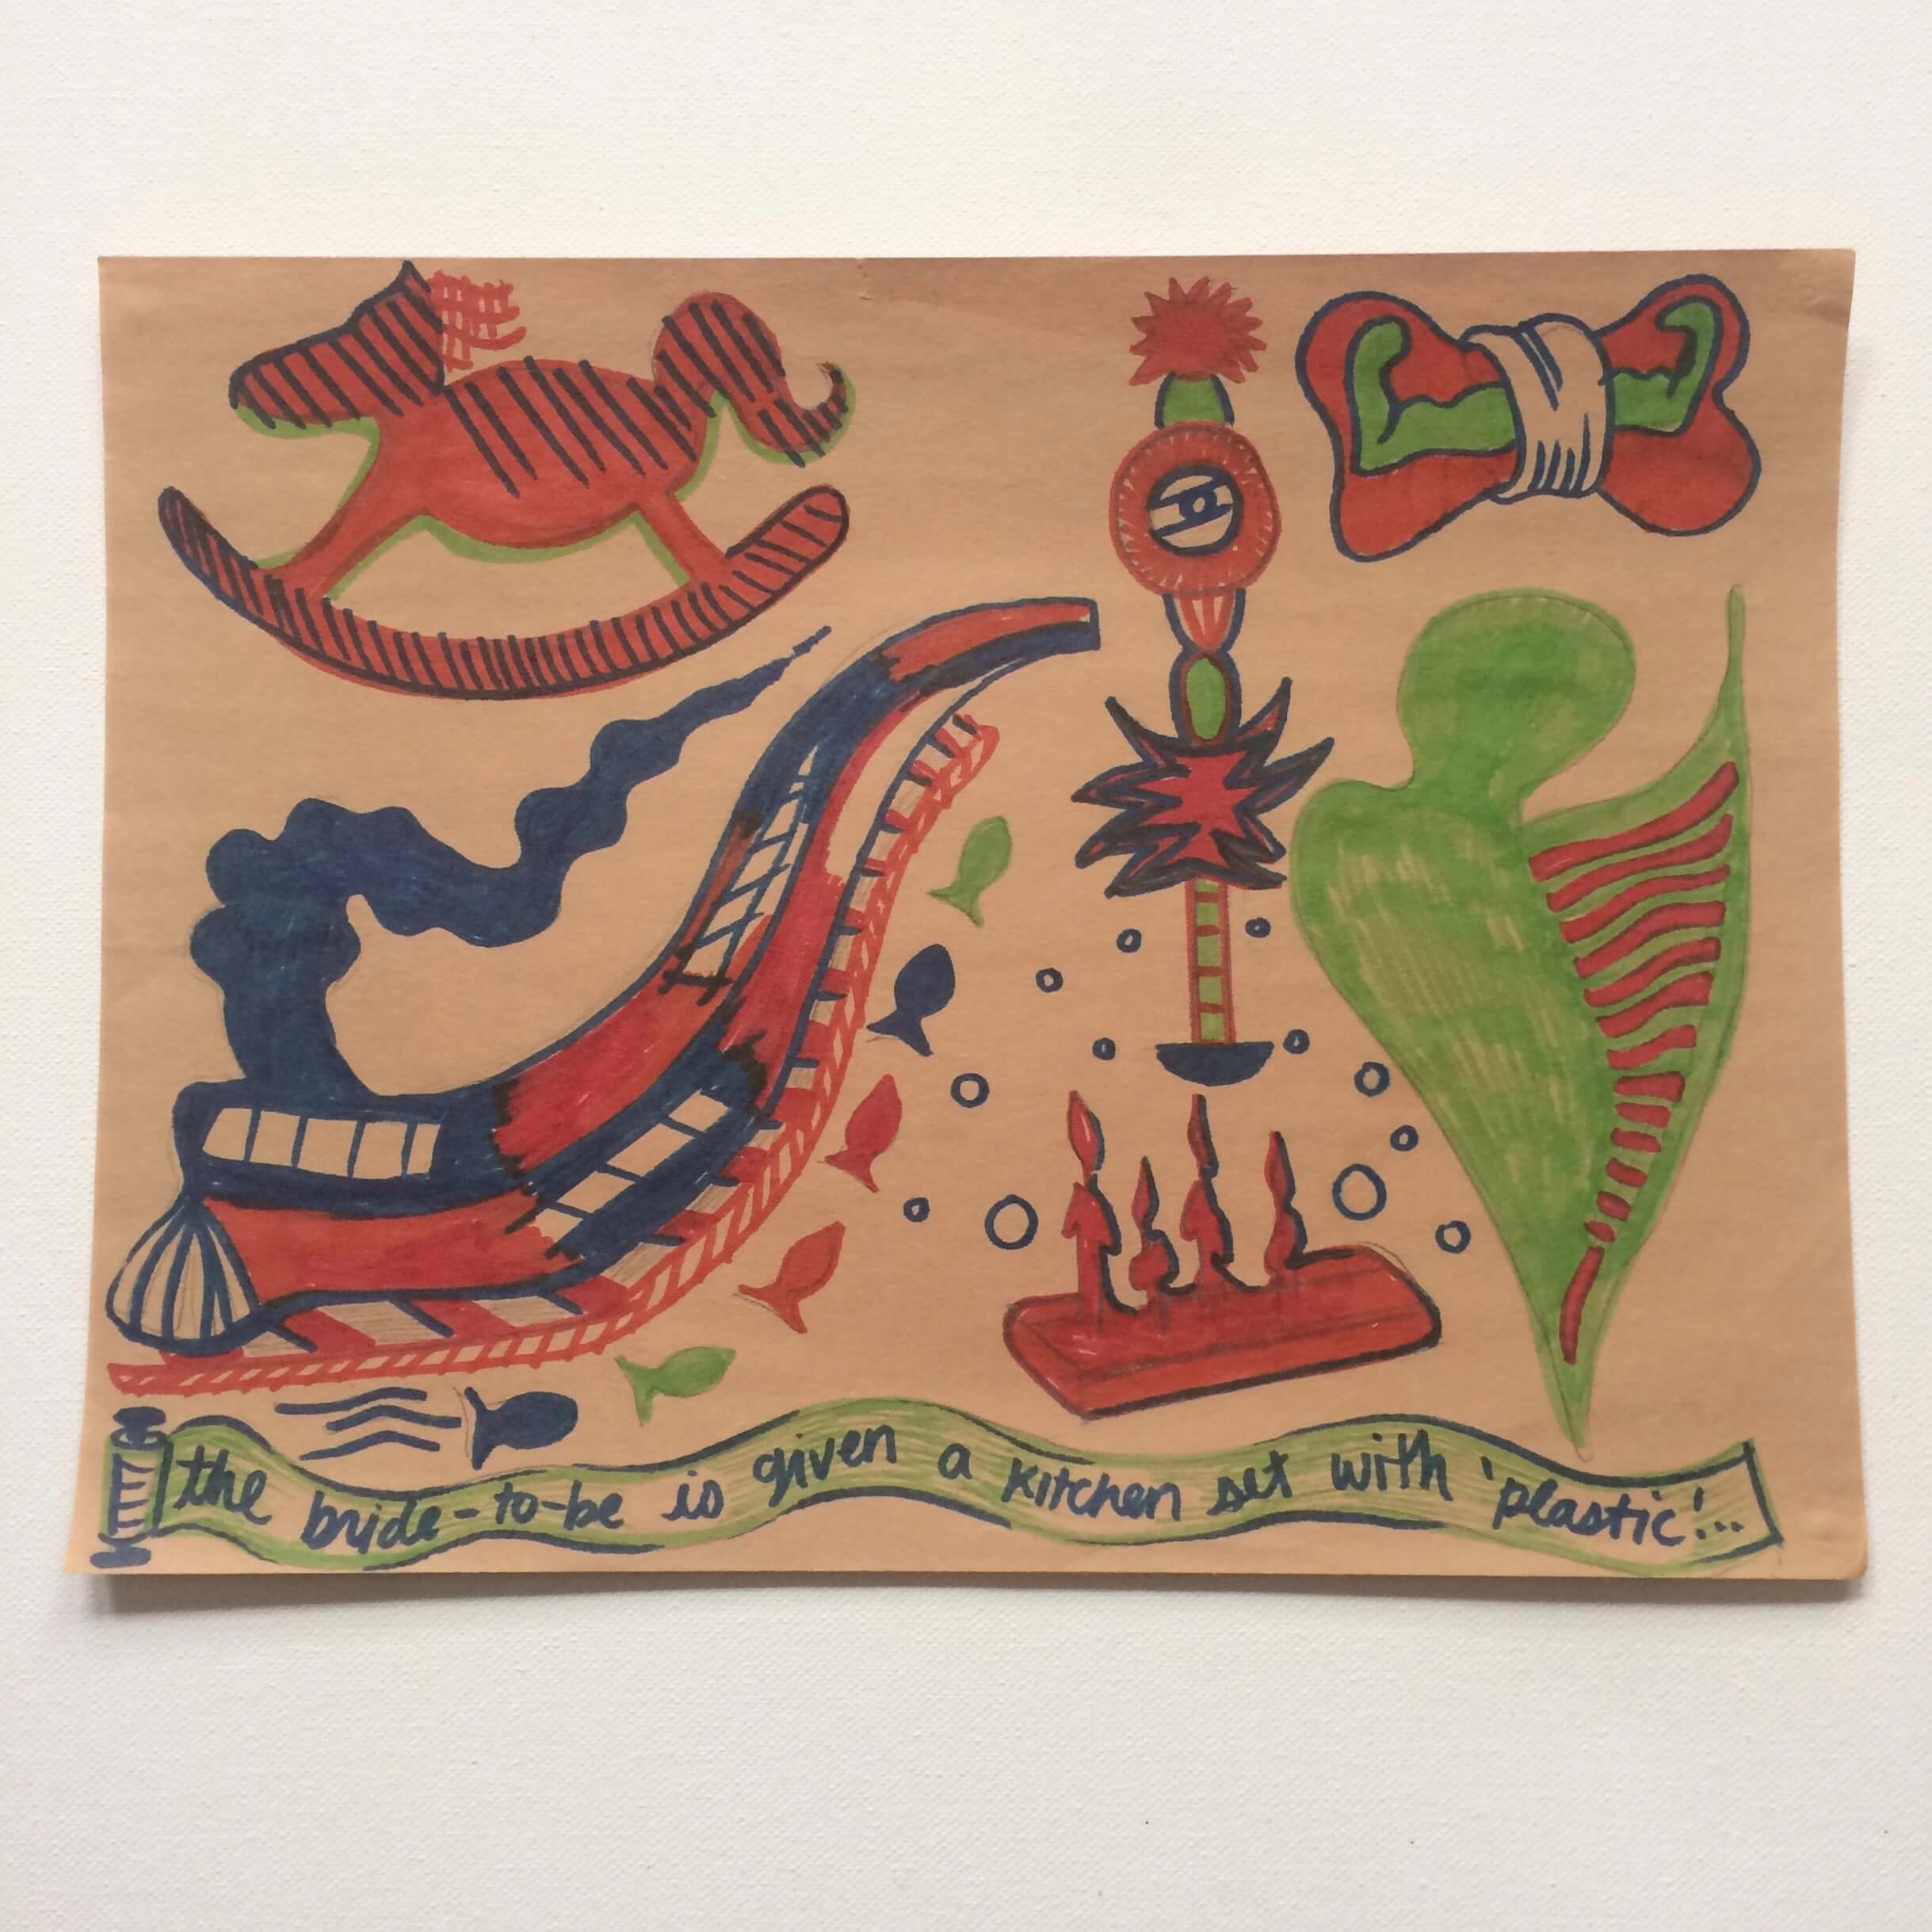 the bride-to-be is given a kitchen set with 'plastic'...